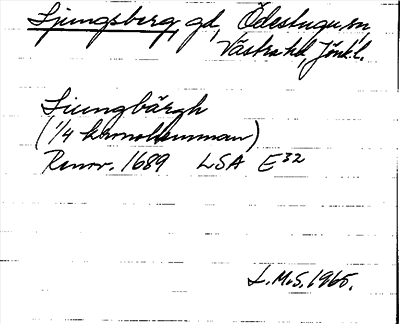 Ljungsberg, gd, Ödestugu sn,
Västra hd, Jönk. l.
Liungbärgh
(1/4 kronohemman)
Renov. 1689 LSA E32
L.M.S. 1965.